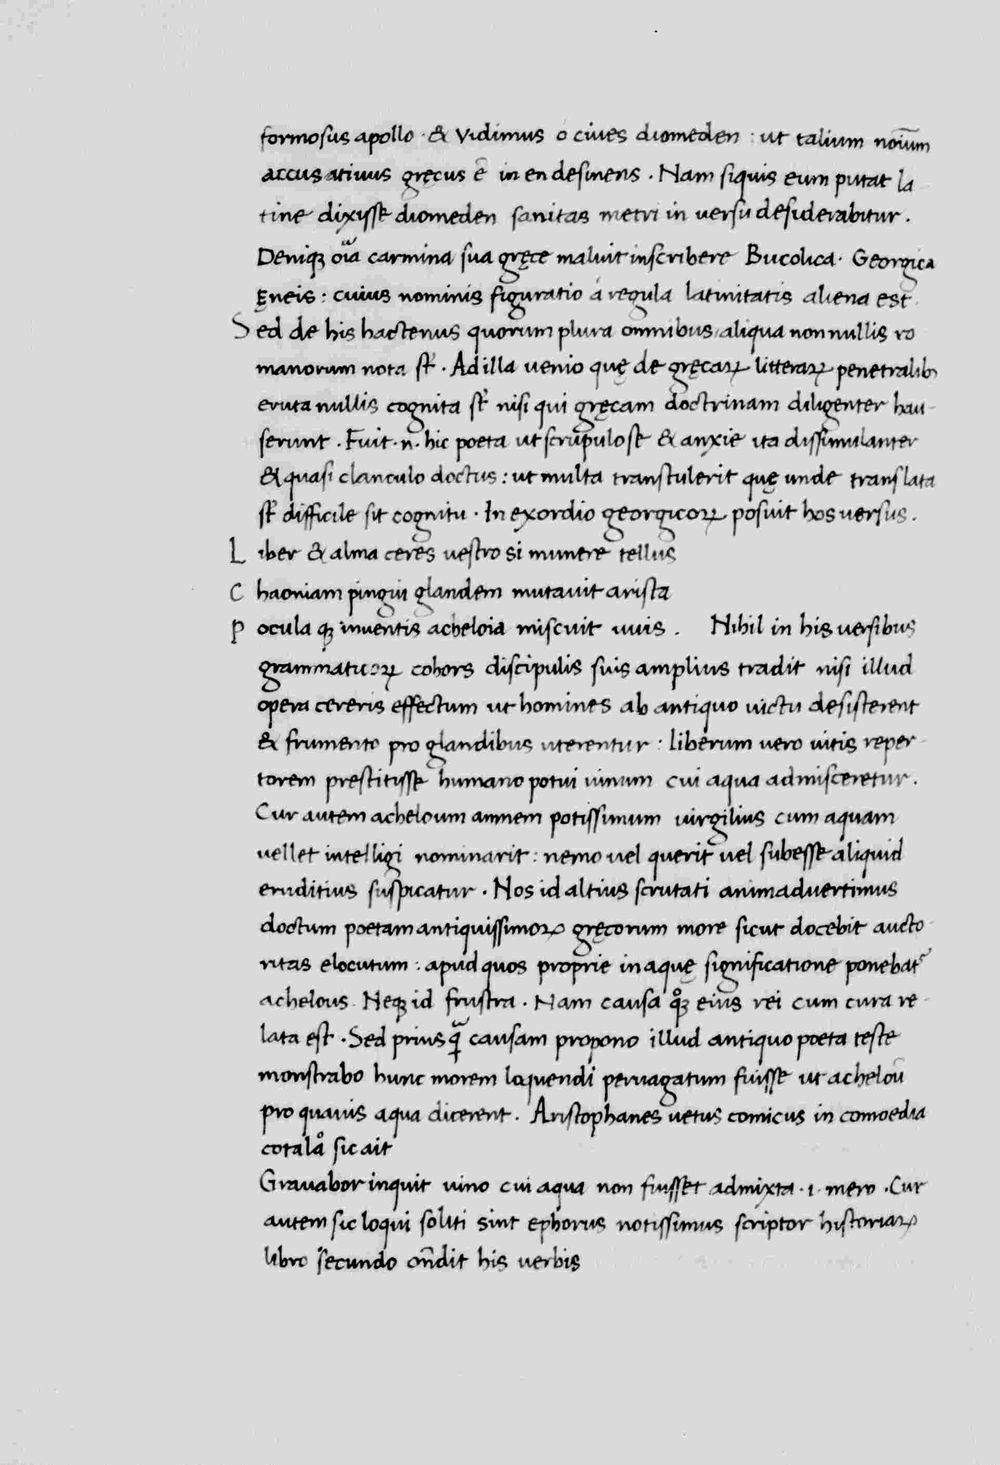 formosus apollo · & Vidimus o ciues diomeden : ut talium noīum
accusatiuus gręcus ē in en desinens . Nam siquis eum putat la
tine dixisse diomeden sanitas metri in uersu desiderabitur .
Deniqꝫ oīa carmina sua gręce maluit inscribere Bucolica · Georgica
Ęneis : cuius nominis figuratio á regula latinitatis aliena est
Sed de his hactenus quorum plura omnibus aliqua non nullis ro
manorum nota st̄ . Ad illa uenio quę de gręcaꝝ litteraꝝ penetralibꝫ
eruta nullis cognita st̄ nisi qui gręcam doctrinam diligenter hau-
serunt . Fuit · n · hic poeta ut scrupulose & anxie ita dissimulanter
& quasi clanculo doctus : ut multa transtulerit quę unde translata
st̄ difficile sit cognitu · In exordio georgicoꝝ posuit hos uersus .
Liber & alma ceres uestro si munere tellus
Chaoniam pingui glandem mutauit arista
Pocula qꝫ inuentis acheloia miscuit uuis . Nihil in his uersibus
grammaticoꝝ cohors discipulis suis amplius tradit nisi illud
opera cereris effectum ut homines ab antiquo uictu desisterent
& frumento pro glandibus uterentur : liberum uero uitis reper-
torem prestitisse humano potui uinum cui aqua admisceretur .
Cur autem acheloum amnem potissimum uirgilius cum aquam
uellet intelligi nominarit : nemo uel querit uel subesse aliquid
eruditius suspicatur . Nos id altius scrutati animaduertimus
doctum poetam antiquissimoꝝ gręcorum more sicut docebit aucto
ritas elocutum : apud quos proprie in aquę significatione ponebat᷑
achelous . Neqꝫ id frustra . Nam causa qͦꝫ eius rei cum cura re-
lata est . Sed prius qᷓ causam propono illud antiquo poeta teste
monstrabo hunc morem loquendi peruagatum fuisse ut acheloū
pro quauis aqua dicerent . Aristophanes uetus comicus in comoedia
cotalͦ sic ait
Grauabor inquit uino cui aqua non fuisset admixta · i · mero . Cur
autem sic loqui soliti sint ephorus notissimus scriptor historiaꝝ
libro secundo on̄dit his uerbis